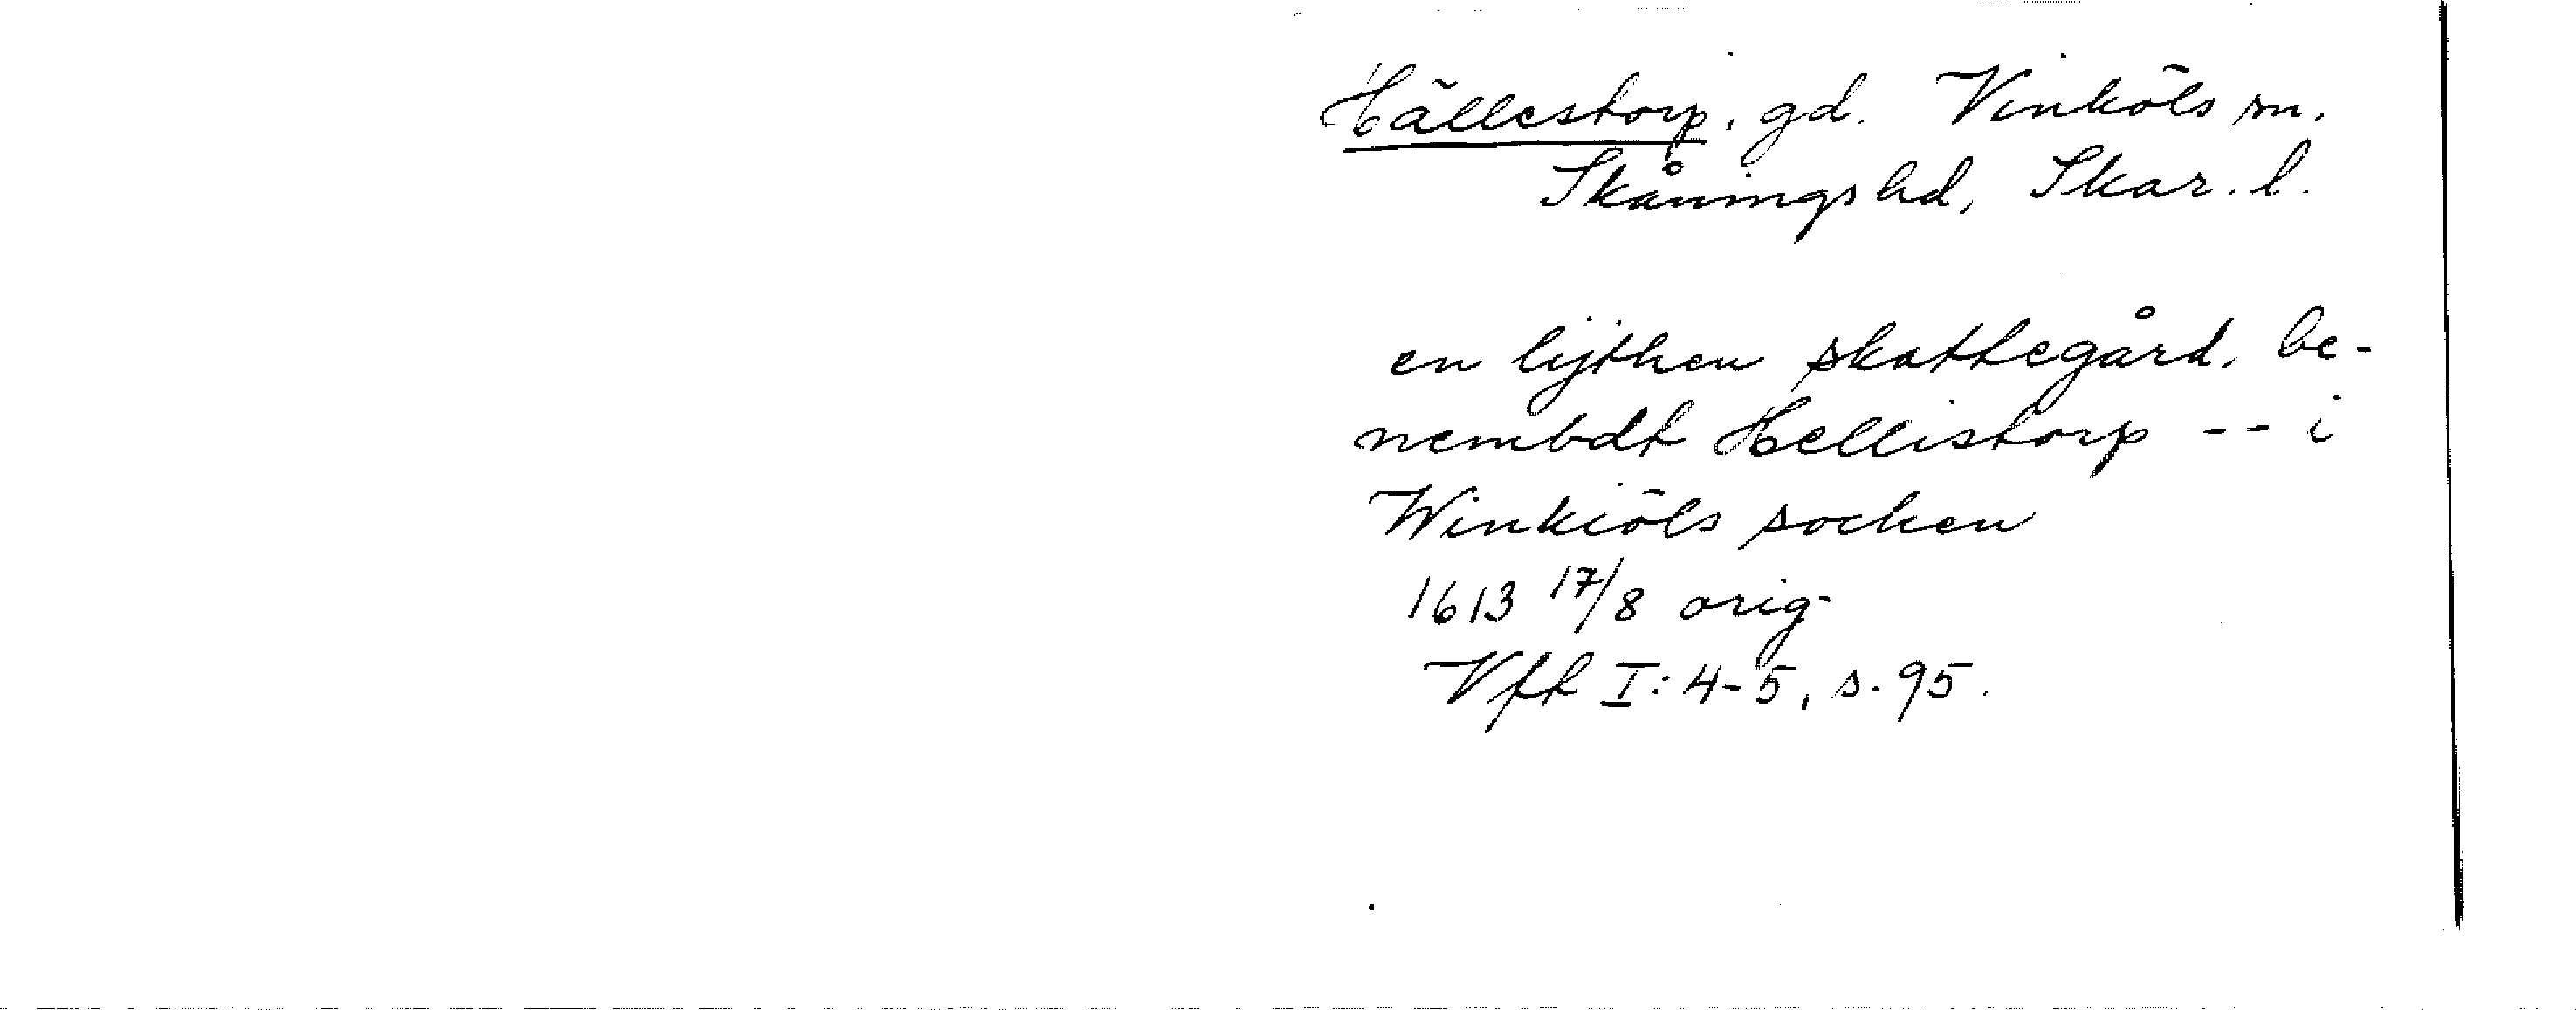 Hällestorp, gd. Vinköls sn.
Skånings hd, Skar. l.
en lijthen skattegård, be-
nembdt Hellistorp -- i
Winkiöls socken
1613 17/8 orig.
Vft I: 4-5, s. 95.